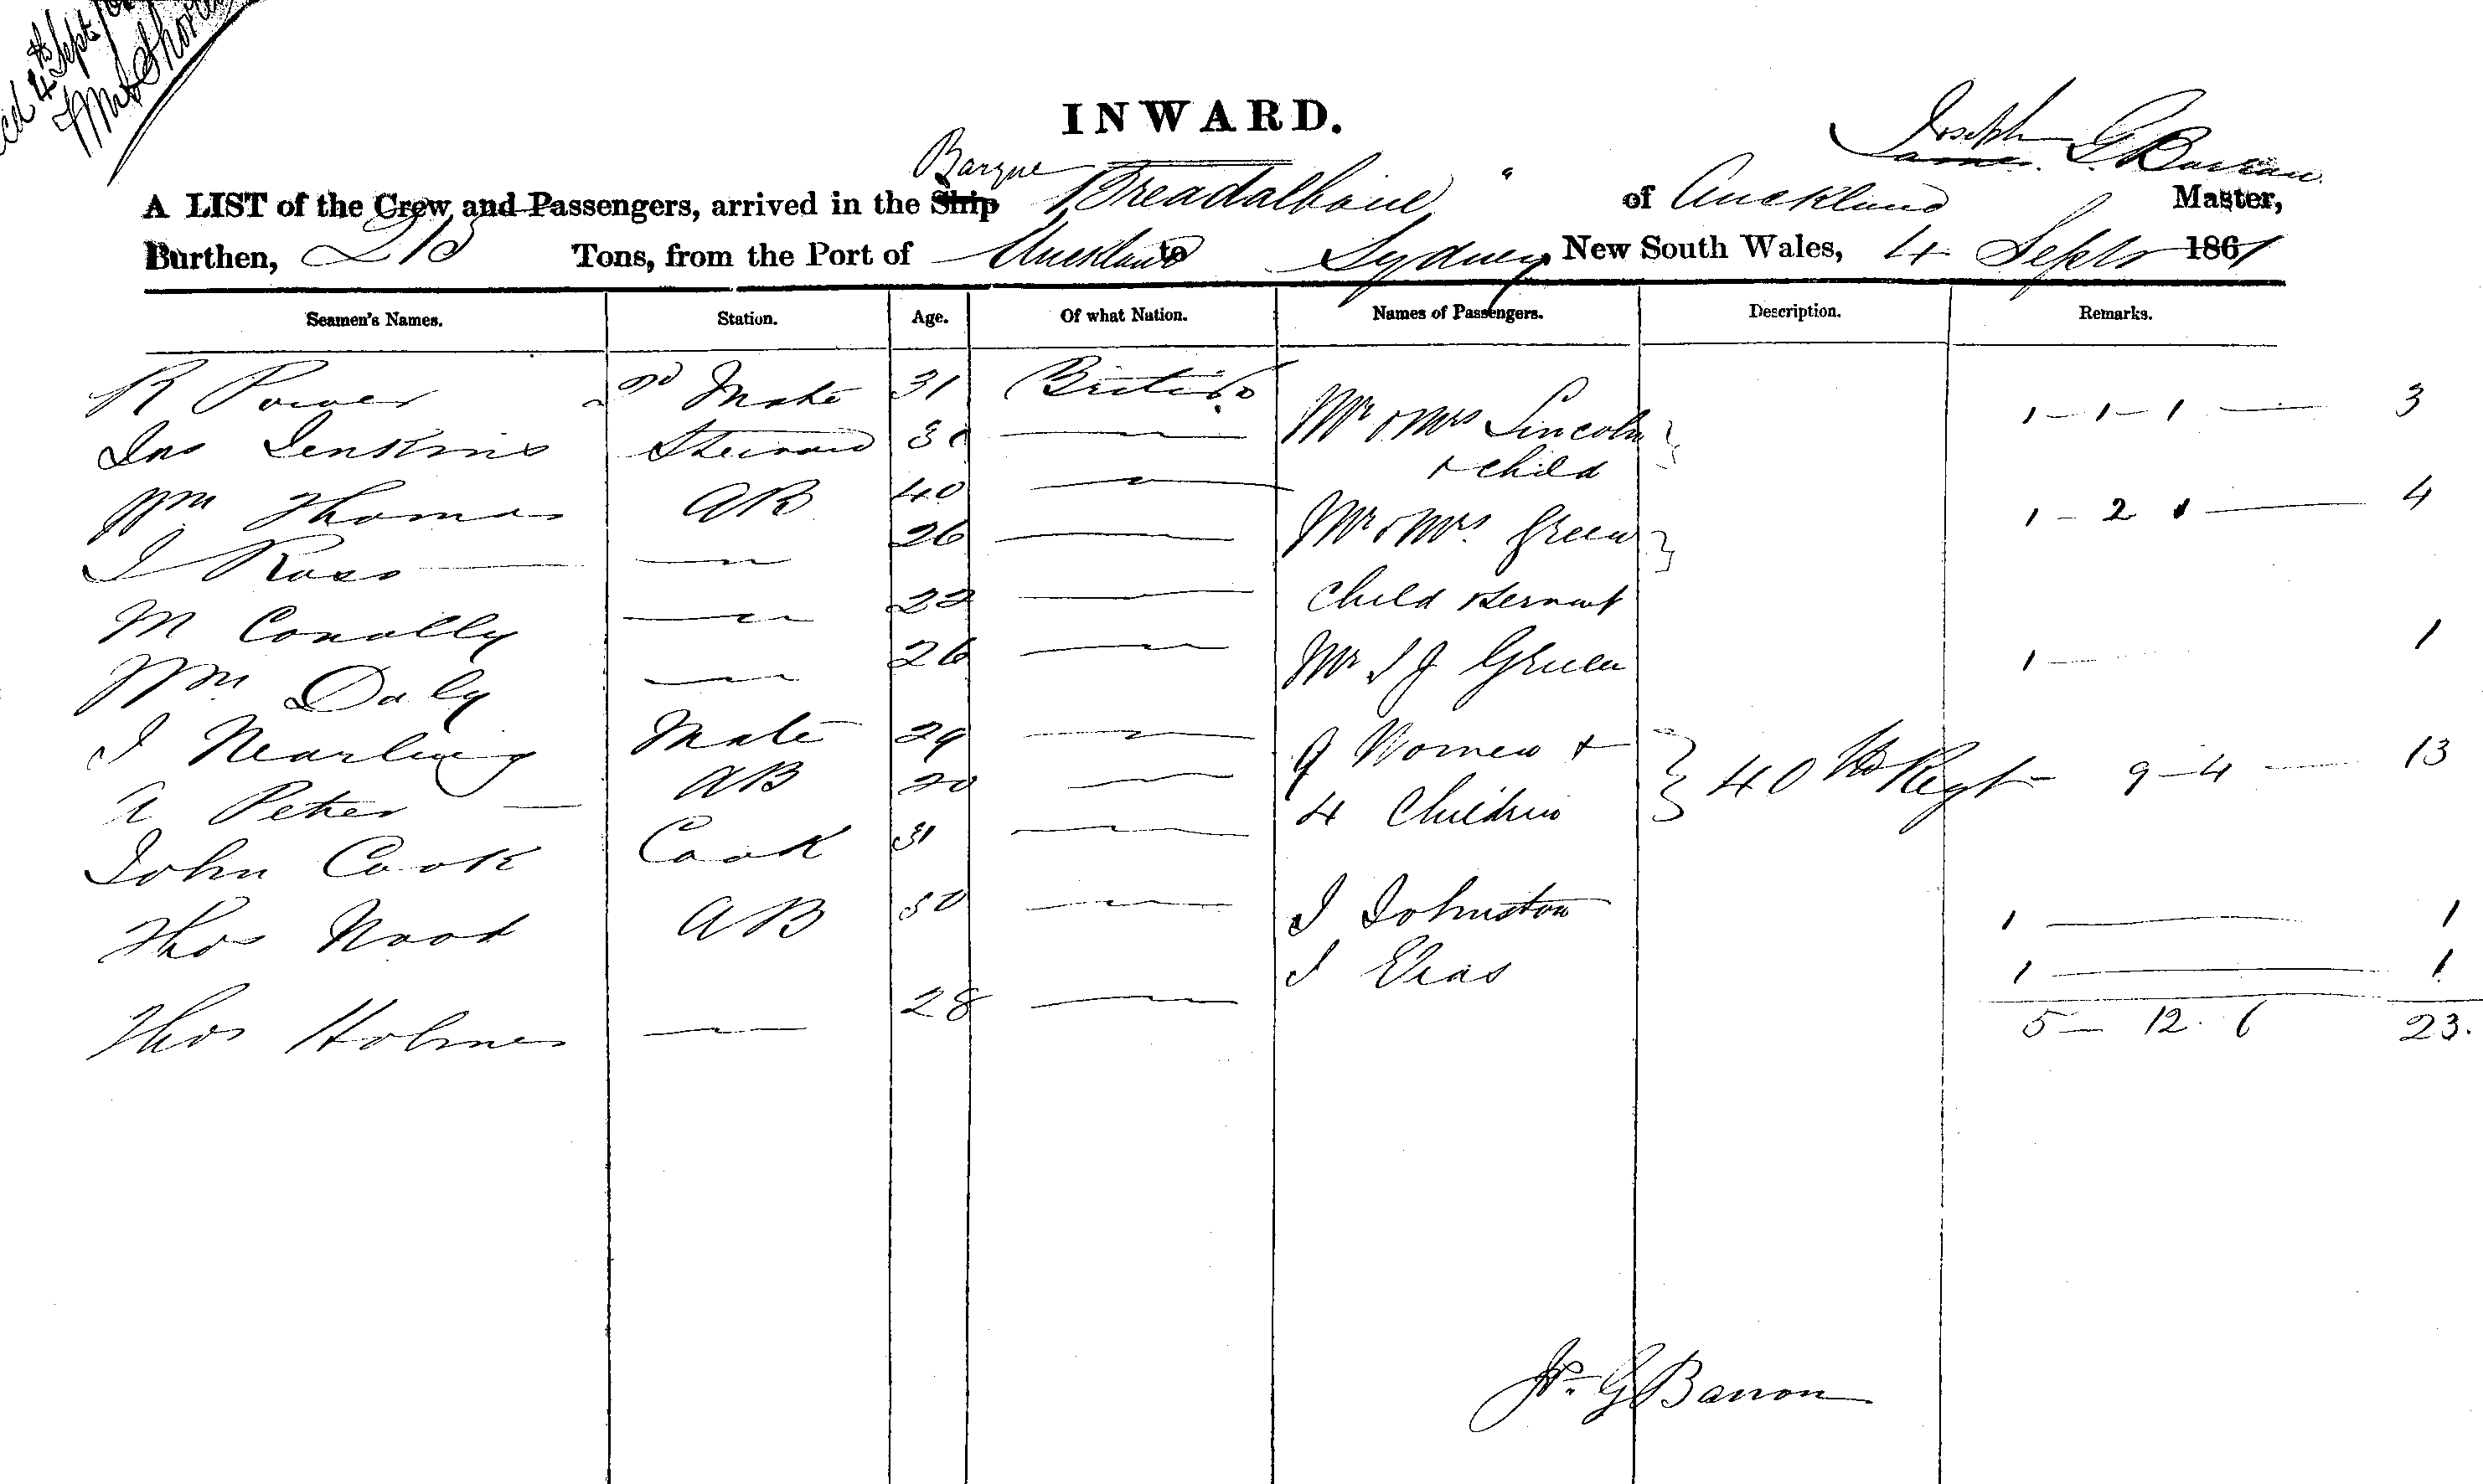 4th Sept
INWARD.
Joseph
James. G Barron
Barque
A LIST of the Crew and Passengers, arrived in the Ship Breadalbane " of Auckland Master,
Burthen, 213 Tons, from the Port of Auckland to Sydney, New South Wales, 4 Septr 1861
Seamen's Names. Station. Age. Of what Nation. Names of Passengers. Description. Remarks.
R Power 2nd Mate 31 British Mr & Mrs Lincoln 1 - 1 - 1 — 3
Jno Jenkins Steward — & child
Wm Thomas AB 40 — Mr & Mrs Green 1 - 2 1 — 4
J Ross — — 26 —
M Conolly — 22 — Child & Servant
Wm Daly — 26 — Mr S J Green 1 - 1
J Mate 29 — 9 Women & 40th Regt - 9 - 4 — 13
A Peter — AB 20 — 4 Children
John Cook Cook 31 —
Thos Wood AB 30 — J Johnston 1 — 1
J Elias 1 — 1
Thos Holmes — 28 — 5 - 12. 6 23.
Js. G Barron